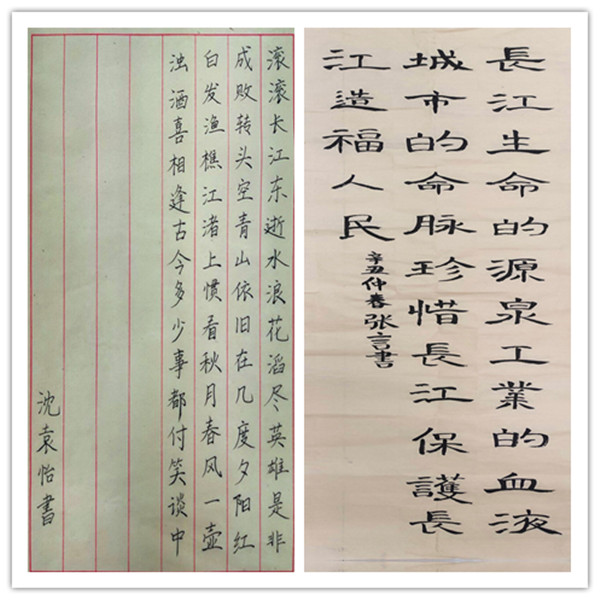 滚滚长江东逝水浪花滔尽英雄是非
成败转头空青山依旧在几度夕阳红
白发渔樵江渚上惯看秋月春风一壶
浊酒喜相逢古今多少事都付笑谈中
沈袁怡書
長江生命的源泉工業的血液
城市的命脉珍惜長江保護長
江造福人民
辛丑仲春张言書